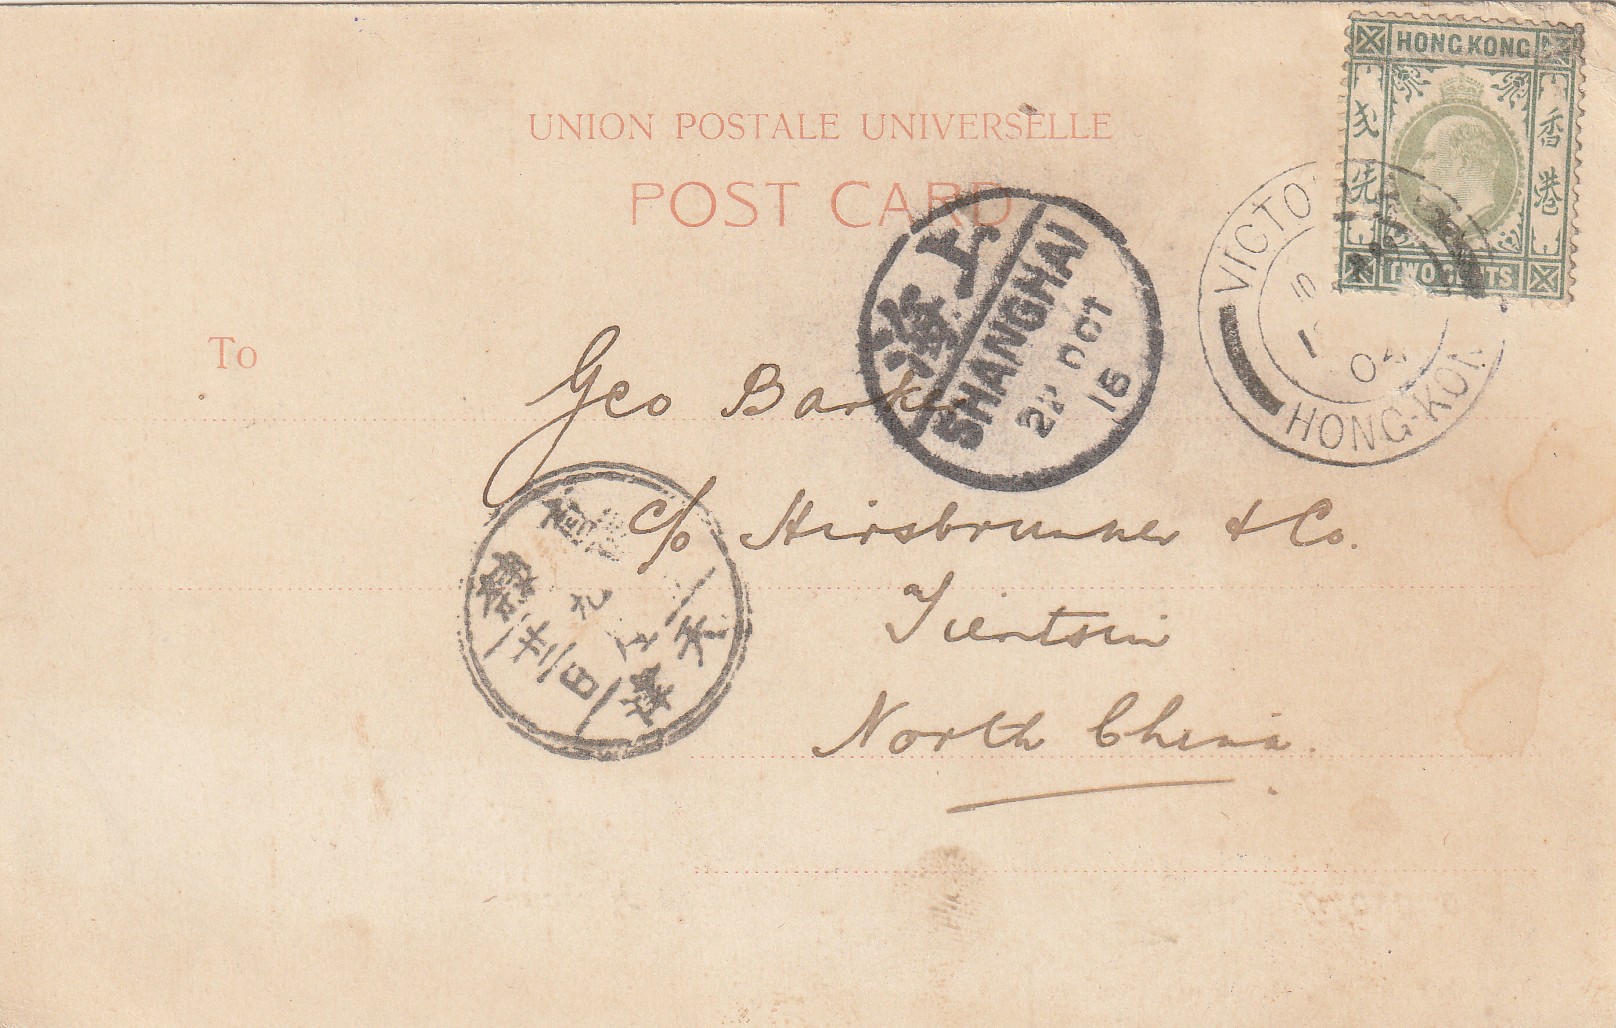 UNION POSTALE UNIVERSELLE
POST CARD
HONG KONG
香港
先
TWO CENTS
VICTO
HONG-KON
04
上海
SHANGHAI
2P OCT
16
To
Geo Bark
c/o Hirsbrunner & Co.
Tientsin
North China.
天津
九
廿三日